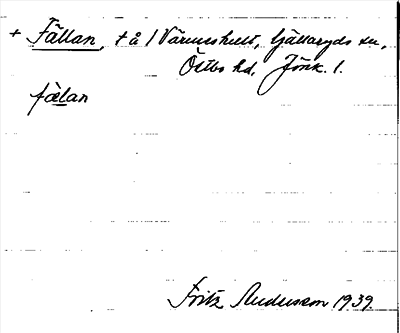 + Fällan, + å 1 Värmeshult, Gällaryds sn,
Östbo hd, Jönk. l.
fä̀lan
Fritz Andersson 1939